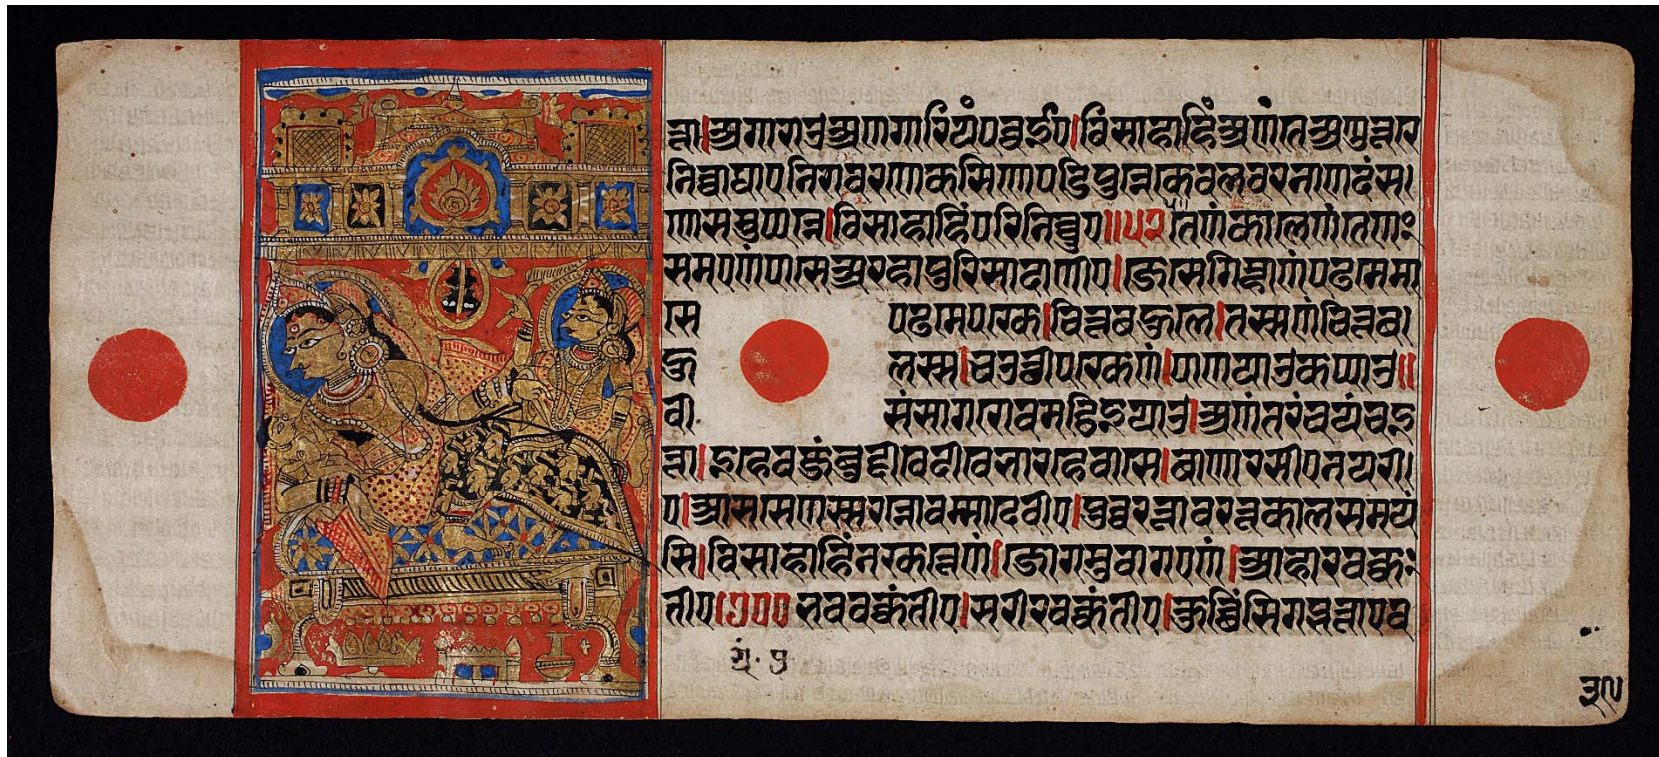 त्ता।अगाराउअणगारियंपव्वईए।विसाहाहिंअणंतेअणुत्तरे
निव्वाघाएनिरावरणेकसिणेपडिपुन्नेकेवलवरनाणदंस
णेसमुप्पन्ने।विसाहाहिंपरिनिव्वुए॥५२तेणंकालेणंतेणं
समएणंपासेअरहापुरिसादाणीए।जेसेगिम्हाणंपढमेमा
सेपढमेपरके।चित्तबहुले।तस्सणंचित्तब
हुलस्स।चउत्थीपरकेणं।पाणयाउकप्पाउ॥
वीसंसागरोवमट्ठिइयाउ।अणंतरंचयंचइ
त्ता।इहेवजंबुद्दीवेदीवेभारहेवासे।वाणारसीएनयरी
ए।आससेणस्सरन्नोवम्माएदेवीए।पुव्वरत्तावरत्तकालसमयं
सि।विसाहाहिंनरकत्तेणं।जोगमुवागएणं।आहारवक्कं
तीए।७००भववक्कंतीए।सरीरवक्कंतीए।कुच्छिंसिगब्भत्ताएव
ग्रं.
३९